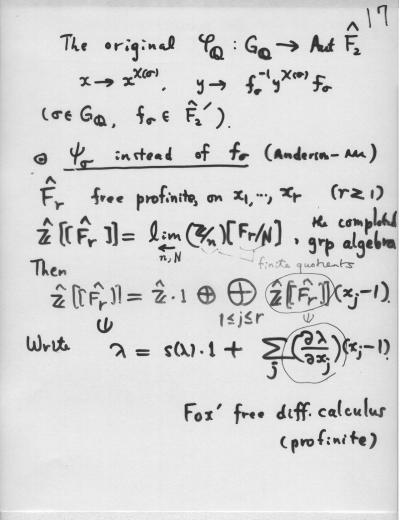 17
The original φ_ℚ : G_ℚ → Aut F̂₂
x → x^{χ(σ)}, y → f_σ^{-1} y^{χ(σ)} f_σ
(σ ∈ G_ℚ, f_σ ∈ F̂₂′).
⊙ ψ_σ instead of f_σ (Anderson-
F̂_r free profinite, on x₁, ⋯, x_r (r ≥ 1)
Ẑ[[F̂_r]] = lim_{← n,N} (ℤ/n)[F_r/N], the completed grp algebra
finite quotients
Then
Ẑ[[F̂_r]] = Ẑ·1 ⊕ ⊕_{1≤j≤r} Ẑ[[F̂_r]](x_j−1)
Write λ = s(λ)·1 + Σ_j (∂λ/∂x_j)(x_j−1)
Fox' free diff. calculus
(profinite)